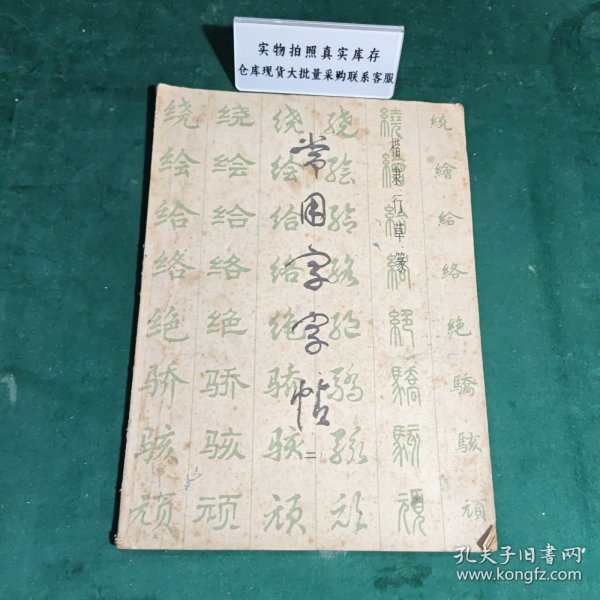 实物拍照真实库存
仓库现货大批量采购联系客服
常用字字帖
二
楷隶行草篆
绕绘给络绝骄骇顽
绕绘给络绝骄骇顽
绕绘给络绝骄骇顽
绕绘给络绝骄骇顽
繞繪給絡絕驕駭頑
繞繪給絡絕驕駭頑
孔夫子旧书网
www.kongfz.com